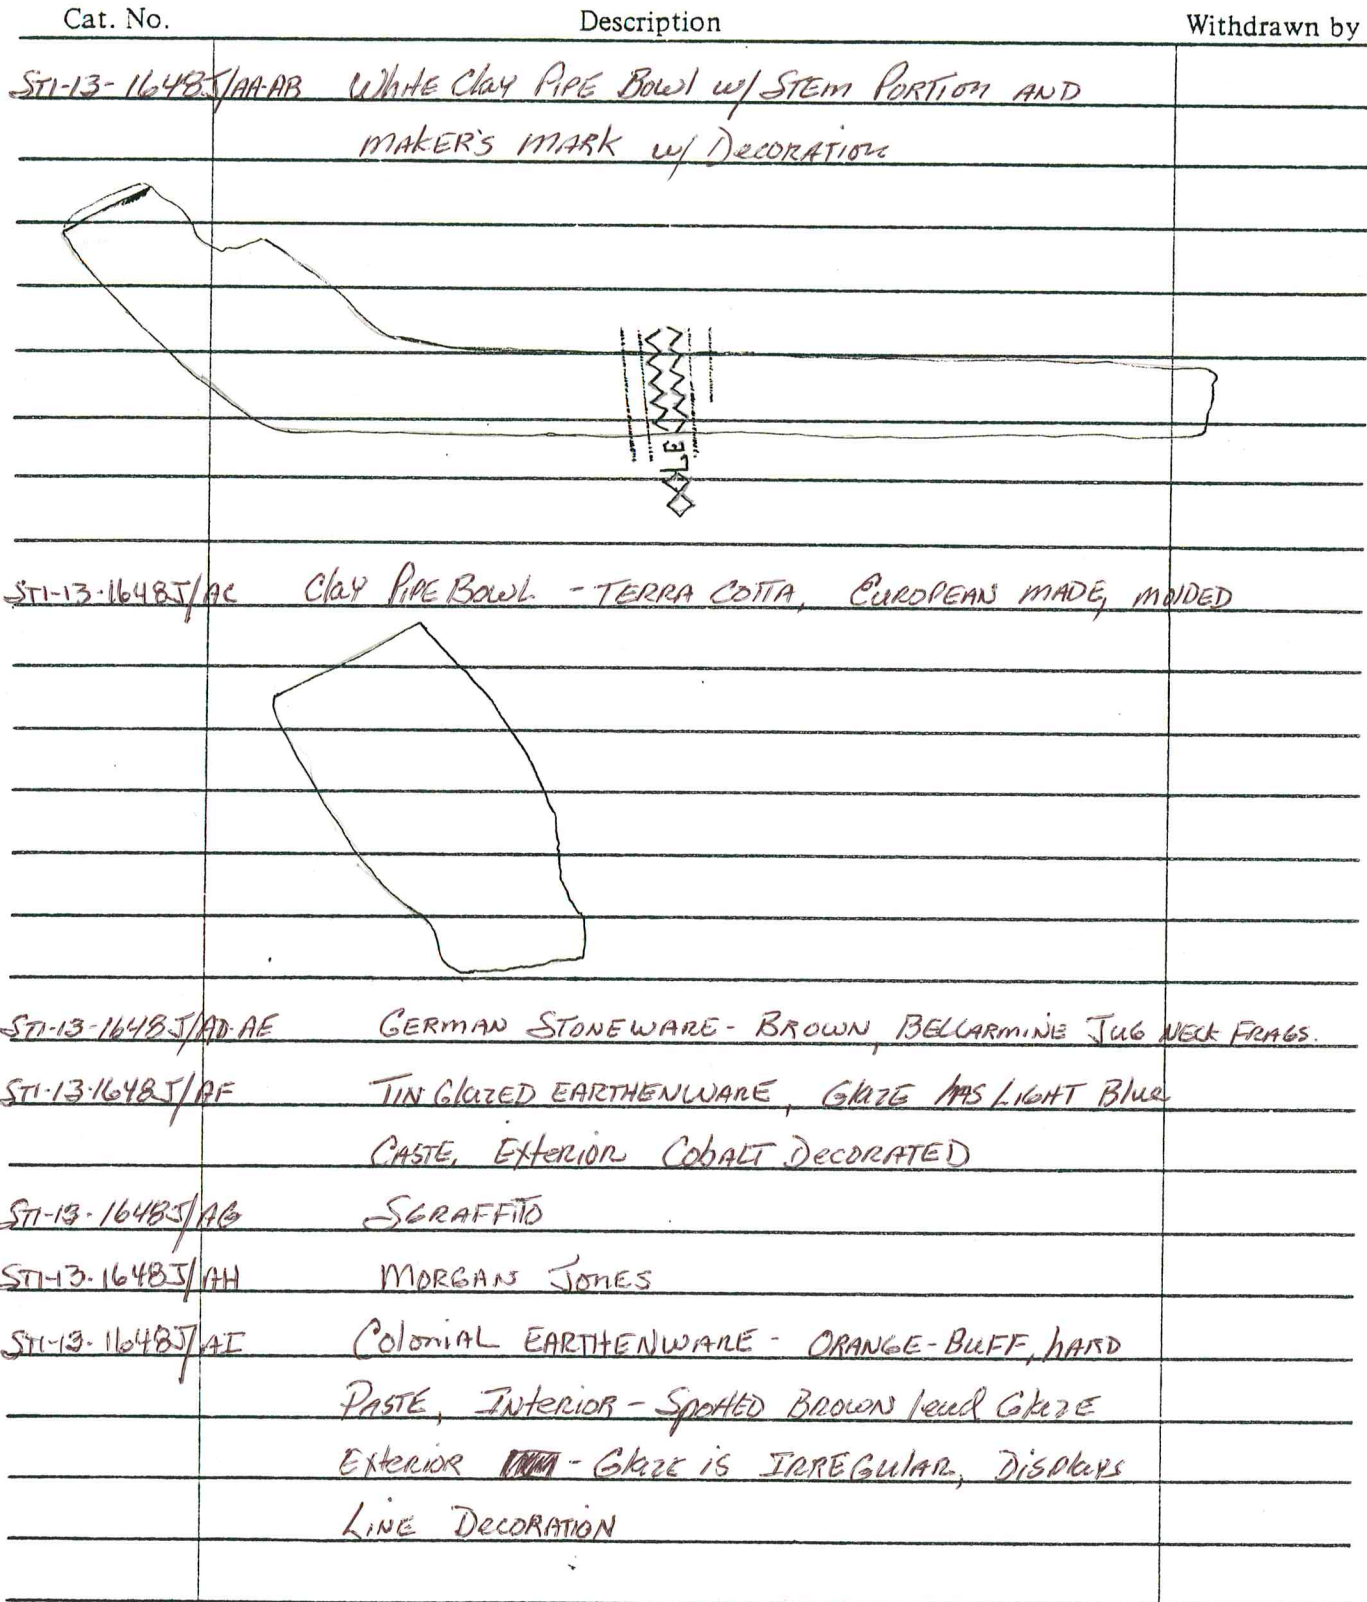 Cat. No. Description Withdrawn by
ST1-13-1648J/AA-AB White Clay Pipe Bowl w/ STEM PORTION AND
MAKER'S MARK w/ DECORATION
LE
ST1-13-1648J/AC Clay PIPE BOWL - TERRA COTTA, EUROPEAN MADE, MOLDED
ST1-13-1648J/AD-AE GERMAN STONEWARE - BROWN, BELLARMINE JUG NECK FRAGS.
ST1-13-1648J/AF TIN GlaZED EARTHENWARE, GlaZE HAS LIGHT Blue
CASTE, EXTERIOR COBALT DECORATED
ST1-13-1648J/AG SGRAFFITO
ST1-13-1648J/AH MORGAN JONES
ST1-13-1648J/AI COLONIAL EARTHENWARE - ORANGE-BUFF, HARD
PASTE, INTERIOR - SPOTTED BROWN lead GlaZE
EXTERIOR - GlaZE is IRREGULAR, DISPLAYS
LINE DECORATION